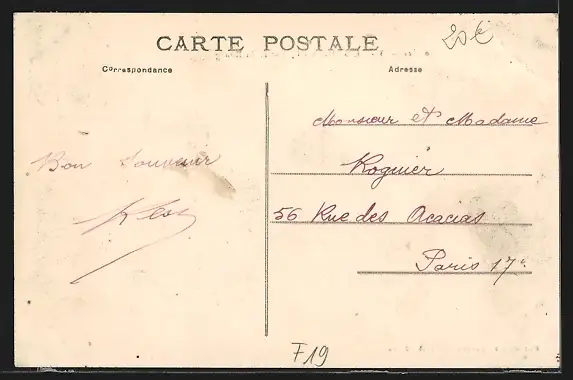 CARTE POSTALE
20€
Correspondance
Adresse
Bon Souvenir
Monsieur et Madame
Roguier
56 Rue des Acacias
Paris 17e
F19